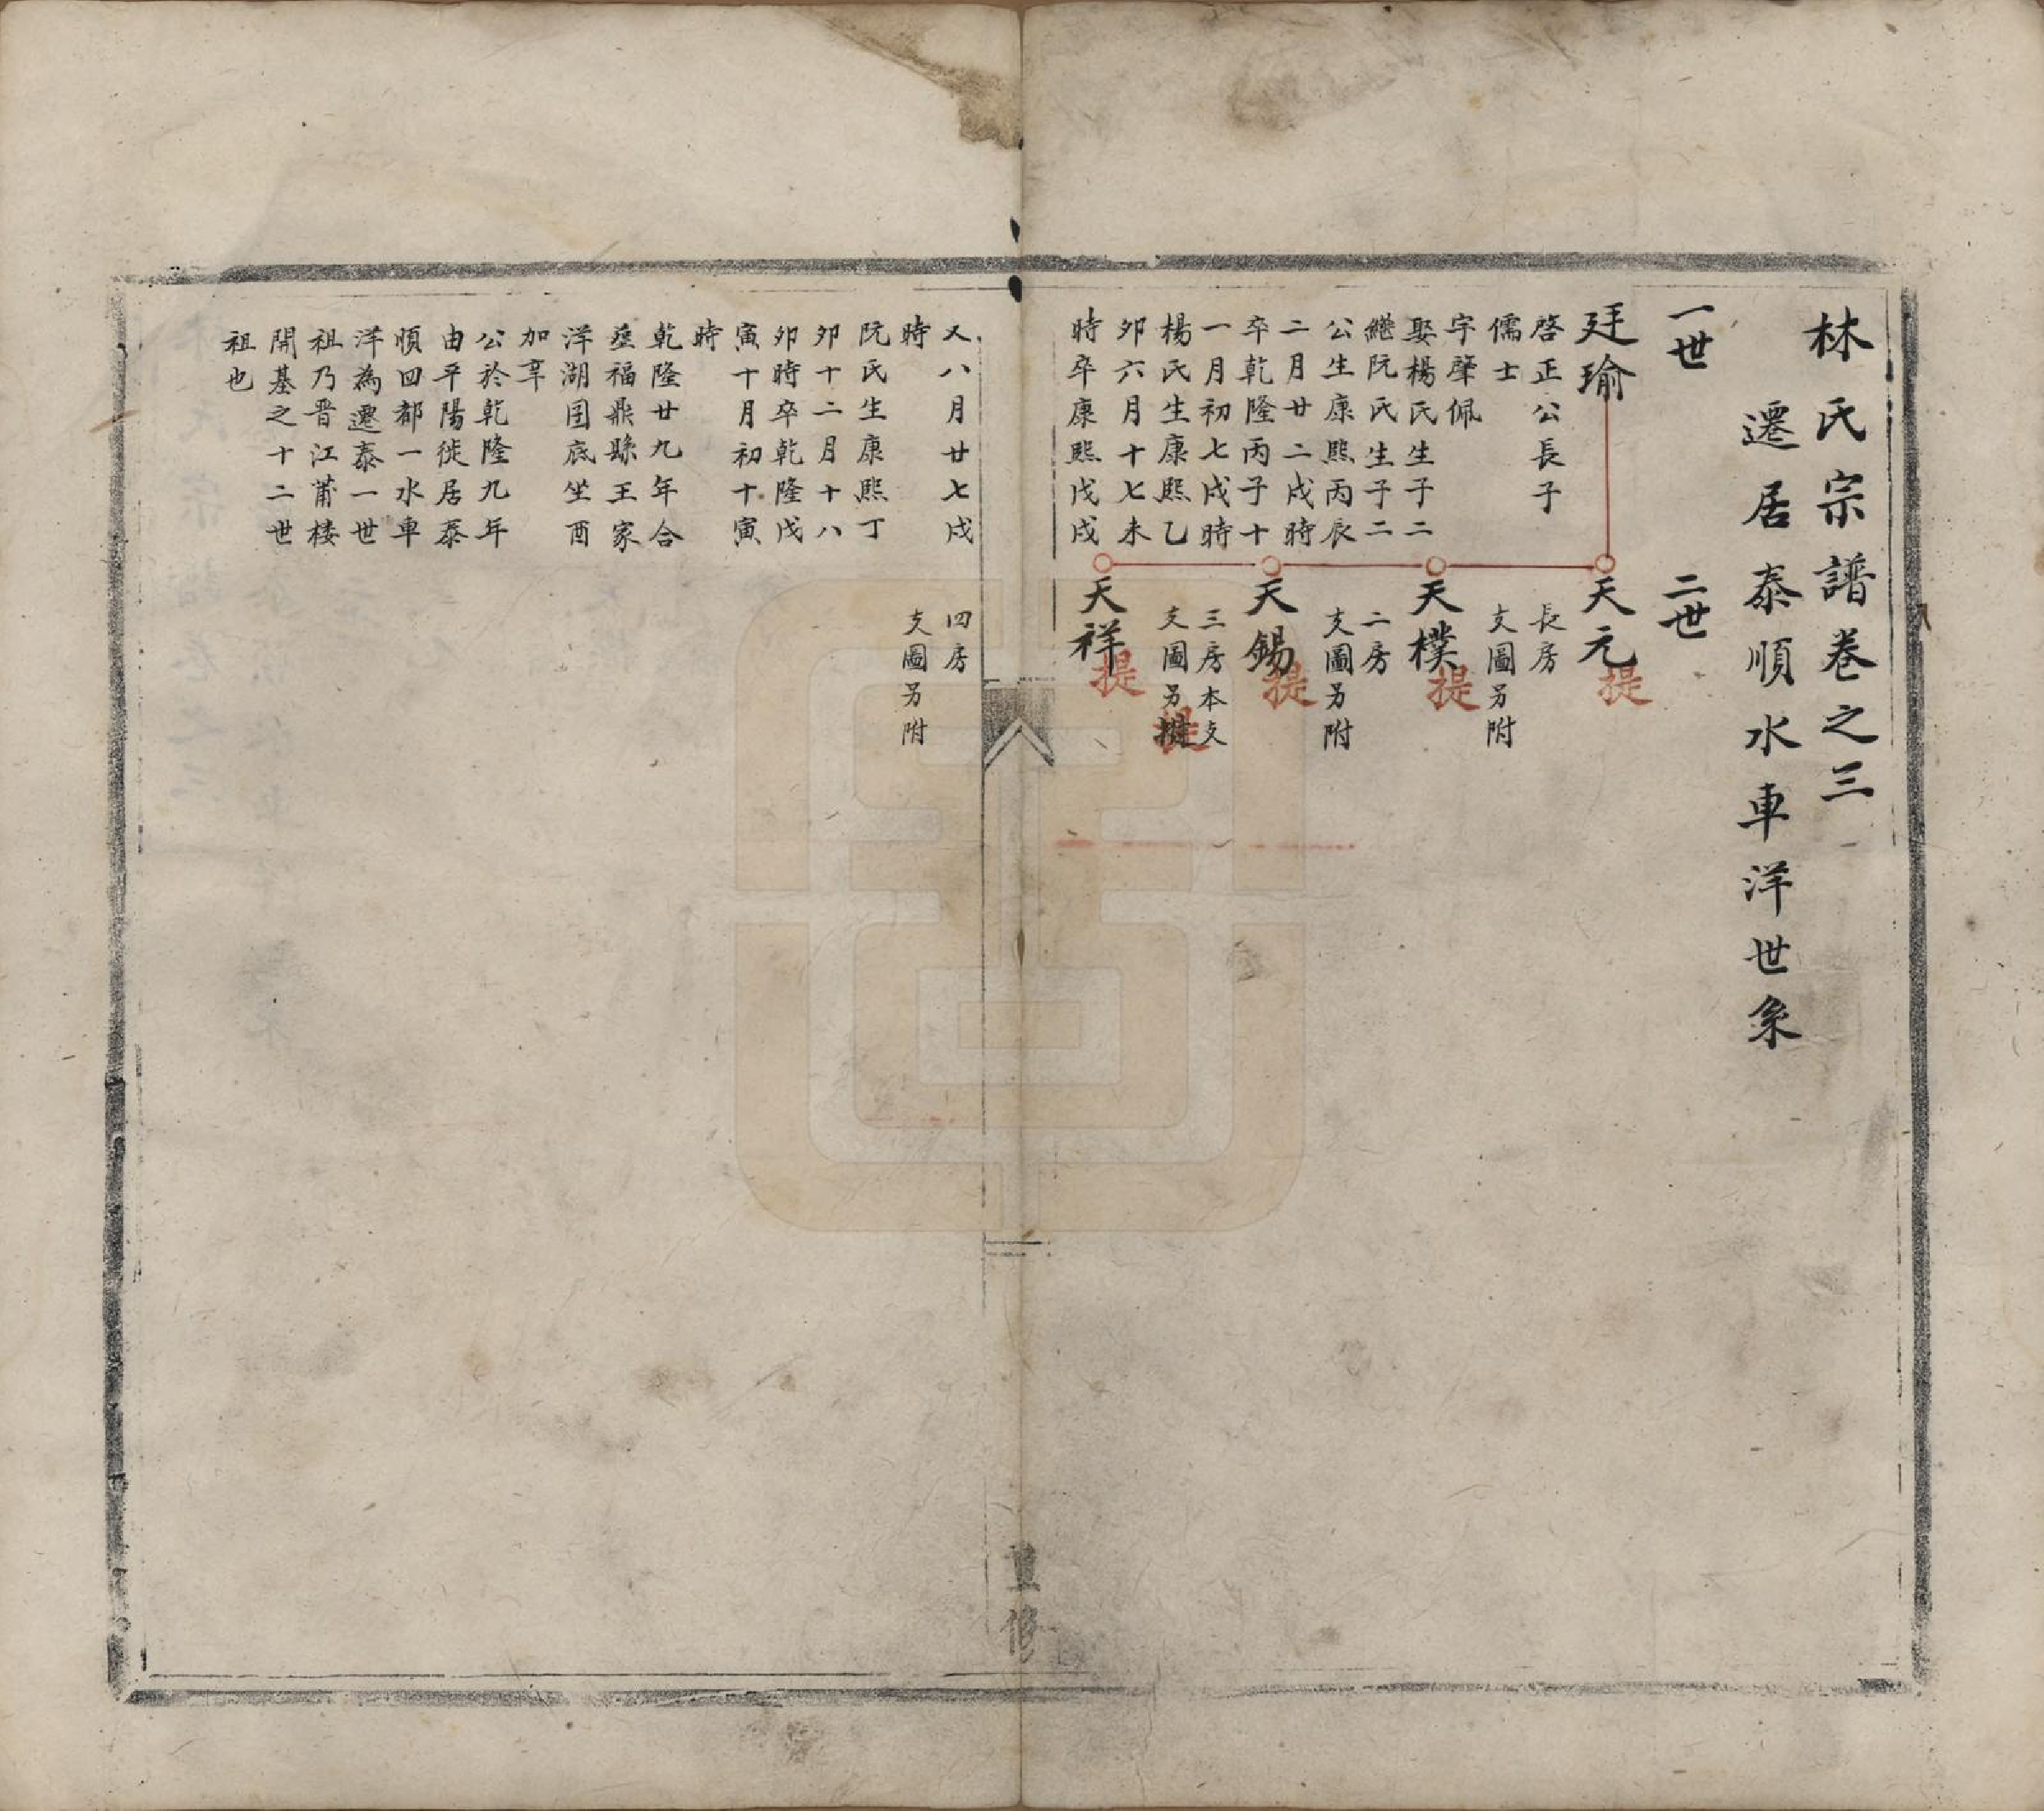 林氏宗譜卷之三
遷居泰順水車洋世系
一世
二世
廷瑜
啓正公長子
儒士
字肇佩
娶楊氏生子二
繼阮氏生子二
公生康熙丙辰
二月廿二戌時
卒乾隆丙子十
一月初七戌時
楊氏生康熙乙
卯六月十七未
時卒康熙戊戌
天元
提
長房
支圖另附
天樸
提
二房
支圖另附
天錫
提
三房本支
支圖另
提
天祥
提
又八月廿七戌
時
阮氏生康熙丁
卯十二月十八
卯時卒乾隆戊
寅十月初十寅
時
乾隆廿九年合
塟福鼎縣王家
洋湖囯底坐酉
加辛
公於乾隆九年
由平陽徙居泰
順四都一水車
洋為遷泰一世
祖乃晋江莆楼
開基之十二世
祖也
四房
支圖另附
重修